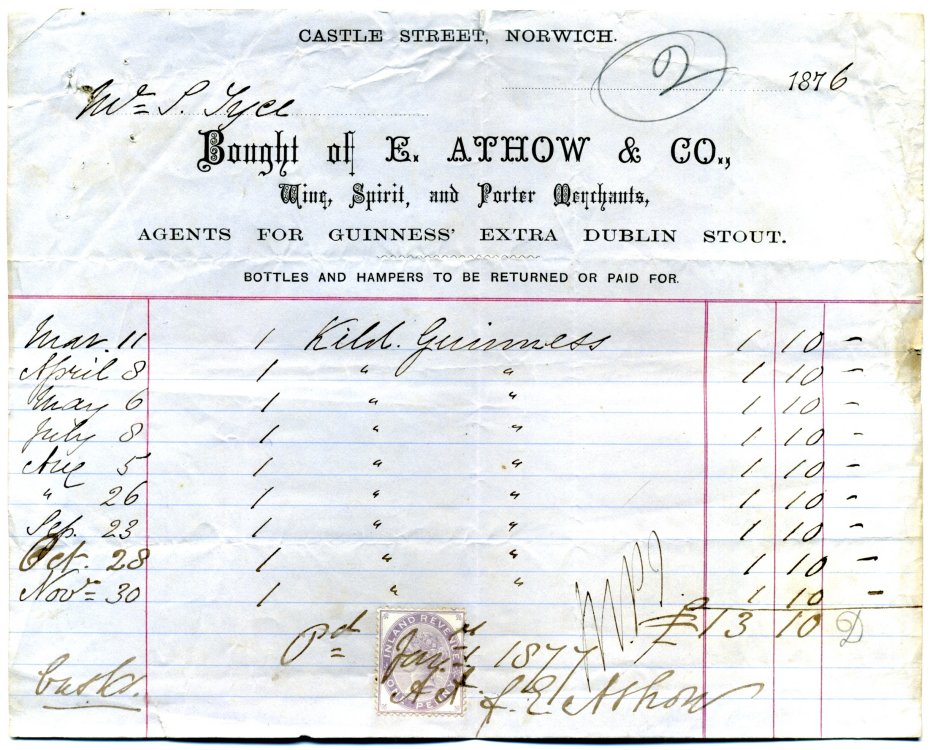 CASTLE STREET, NORWICH.
2
1876
Mr S. Tyce
Bought of E. ATHOW & CO.,
Wine, Spirit, and Porter Merchants,
AGENTS FOR GUINNESS' EXTRA DUBLIN STOUT.
BOTTLES AND HAMPERS TO BE RETURNED OR PAID FOR.
Mar. 11 1 Kild. Guinness 1 10 -
April 8 1 " " 1 10 -
May 6 1 " " 1 10 -
July 8 1 " " 1 10 -
Aug 5 1 " " 1 10 -
" 26 1 " " 1 10 -
Sep. 23 1 " " 1 10 -
Oct. 28 1 " " 1 10 -
Novr 30 1 " " 1 10 -
£13 10
INLAND REVENUE
ONE PENNY
Pd Jay. 1877
Casks.
E Athow